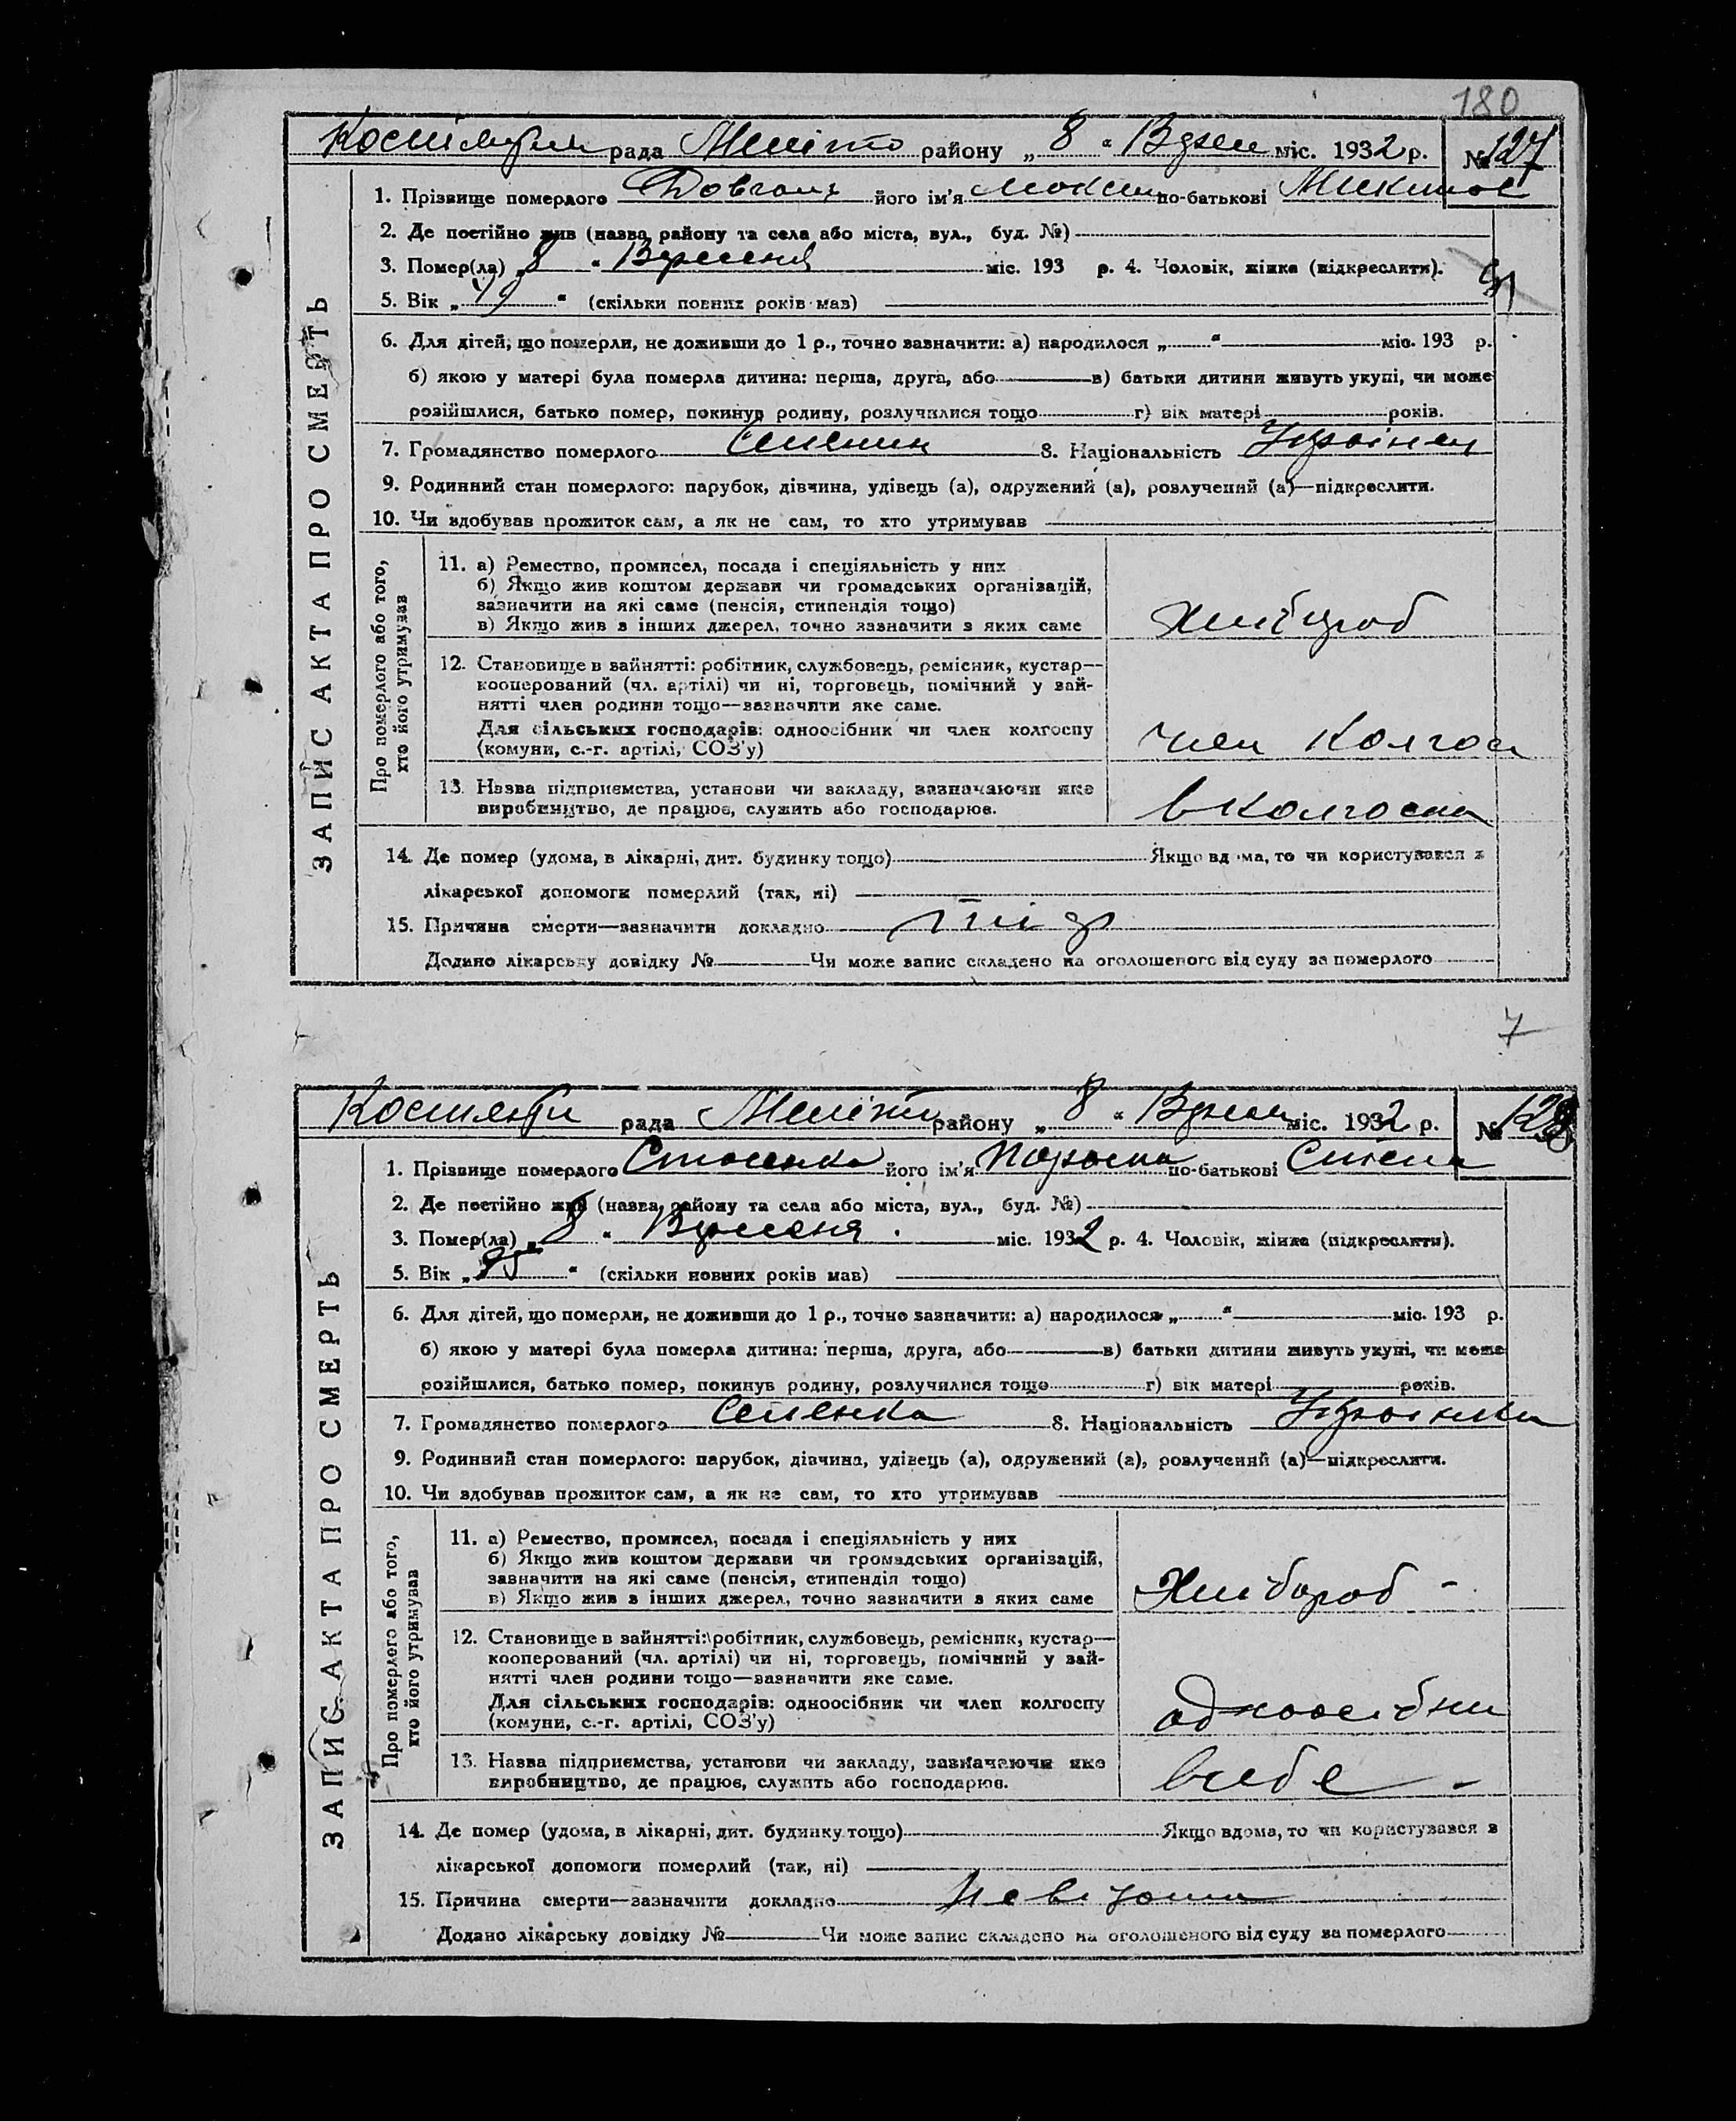 180
рада району „ 8 “ міс. 1932 р. № 127
1. Прізвище померлого його ім'я по-батькові
2. Де постійно жив (назва району та села або міста, вул., буд. №)
3. Помер(ла) „ 8 “ Вересня міс. 193 р. 4. Чоловік, жінка (підкреслити).
5. Вік „ “ (скільки повних років мав)
6. Для дітей, що померли, не доживши до 1 р., точно зазначити: а) народилося „ “ міс. 193 р.
б) якою у матері була померла дитина: перша, друга, або в) батьки дитини живуть укупі, чи може
розійшлися, батько помер, покинув родину, розлучилися тощо г) вік матері років.
7. Громадянство померлого 8. Національність
9. Родинний стан померлого: парубок, дівчина, удівець (а), одружений (а), розлучений (а)—підкреслити.
10. Чи здобував прожиток сам, а як не сам, то хто утримував
ЗАПИС АКТА ПРО СМЕРТЬ
Про померлого або того,
хто його утримував
11. а) Ремество, промисел, посада і спеціяльність у них
б) Якщо жив коштом держави чи громадських організацій,
зазначити на які саме (пенсія, стипендія тощо)
в) Якщо жив з інших джерел, точно зазначити з яких саме
Хлібороб
12. Становище в зайнятті: робітник, службовець, ремісник, кустар—
кооперований (чл. артілі) чи ні, торговець, помічний у зай-
нятті член родини тощо—зазначити яке саме.
Для сільських господарів: одноосібник чи член колгоспу
(комуни, с.-г. артілі, СОЗ'у)
член Колгос
13. Назва підприємства, установи чи закладу, зазначаючи яке
виробництво, де працює, служить або господарює.
в Колгоспі
14. Де помер (удома, в лікарні, дит. будинку тощо) Якщо вдома, то чи користувався з
лікарської допомоги померлий (так, ні)
15. Причина смерти—зазначити докладно
Додано лікарську довідку № Чи може запис складено на оголошеного від суду за померлого
7
рада району „ 8 “ міс. 1932 р. № 128
1. Прізвище померлого його ім'я по-батькові
2. Де постійно жив (назва району та села або міста, вул., буд. №)
3. Помер(ла) „ 8 “ Вересня міс. 1932 р. 4. Чоловік, жінка (підкреслити).
5. Вік „ “ (скільки повних років мав)
6. Для дітей, що померли, не доживши до 1 р., точно зазначити: а) народилося „ “ міс. 193 р.
б) якою у матері була померла дитина: перша, друга, або в) батьки дитини живуть укупі, чи може
розійшлися, батько помер, покинув родину, розлучилися тощо г) вік матері років.
7. Громадянство померлого Селянка 8. Національність
9. Родинний стан померлого: парубок, дівчина, удівець (а), одружений (а), розлучений (а)—підкреслити.
10. Чи здобував прожиток сам, а як не сам, то хто утримував
ЗАПИС АКТА ПРО СМЕРТЬ
Про померлого або того,
хто його утримував
11. а) Ремество, промисел, посада і спеціяльність у них
б) Якщо жив коштом держави чи громадських організацій,
зазначити на які саме (пенсія, стипендія тощо)
в) Якщо жив з інших джерел, точно зазначити з яких саме
Хлібороб -
12. Становище в зайнятті: робітник, службовець, ремісник, кустар—
кооперований (чл. артілі) чи ні, торговець, помічний у зай-
нятті член родини тощо—зазначити яке саме.
Для сільських господарів: одноосібник чи член колгоспу
(комуни, с.-г. артілі, СОЗ'у)
одноосібни
13. Назва підприємства, установи чи закладу, зазначаючи яке
виробництво, де працює, служить або господарює.
14. Де помер (удома, в лікарні, дит. будинку тощо) Якщо вдома, то чи користувався з
лікарської допомоги померлий (так, ні)
15. Причина смерти—зазначити докладно
Додано лікарську довідку № Чи може запис складено на оголошеного від суду за померлого